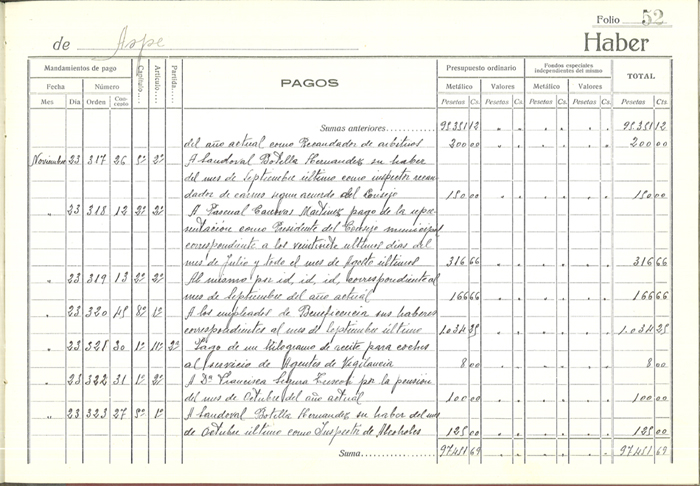 Folio 52
de Aspe Haber
Mandamientos de pago Capítulo Artículo Partida PAGOS Presupuesto ordinario Fondos especiales independientes del mismo TOTAL
Fecha Número Metálico Valores Metálico Valores
Mes Día Orden Pesetas Cs. Pesetas Cs. Pesetas Cs. Pesetas Cs. Pesetas Cts
Sumas anteriores 95.351 12 95.351 12
del año actual como Recaudador de arbitrios 200 00 200 00
Noviembre 23 317 26 A Sandoval Botella Hernandez su haber
del mes de Septiembre último como inspector recau-
dador de carnes segun acuerdo del Consejo 150 00 150 00
" 23 318 12 2º 2º A Pascual Canovas Martinez pago de la repre-
sentacion como Presidente del Consejo municipal
correspondiente a los veintisiete ultimos dias del
mes de Julio y todo el mes de Agosto últimos 316 66 316 66
" 23 319 13 2º 2º Al mismo por id, id, id, correspondiente al
mes de Septiembre del año actual 166 66 166 66
" 23 320 45 8º 1º A los empleados de Beneficencia sus haberes
correspondientes al mes de Septiembre último 1.034 25 1.034 25
" 23 321 30 1º 11º 2º Pago de un kilogramo de aceite para coches
al servicio de Agentes de Vigilancia 8 00 8 00
" 23 322 31 1º 2º A Dª Francisca por la pension
del mes de Octubre del año actual 100 00 100 00
" 23 323 27 1º A Sandoval Botella Hernandez su haber del mes
de Octubre último como Inspector de Alcoholes 125 00 125 00
Suma 97.451 69 97.451 69